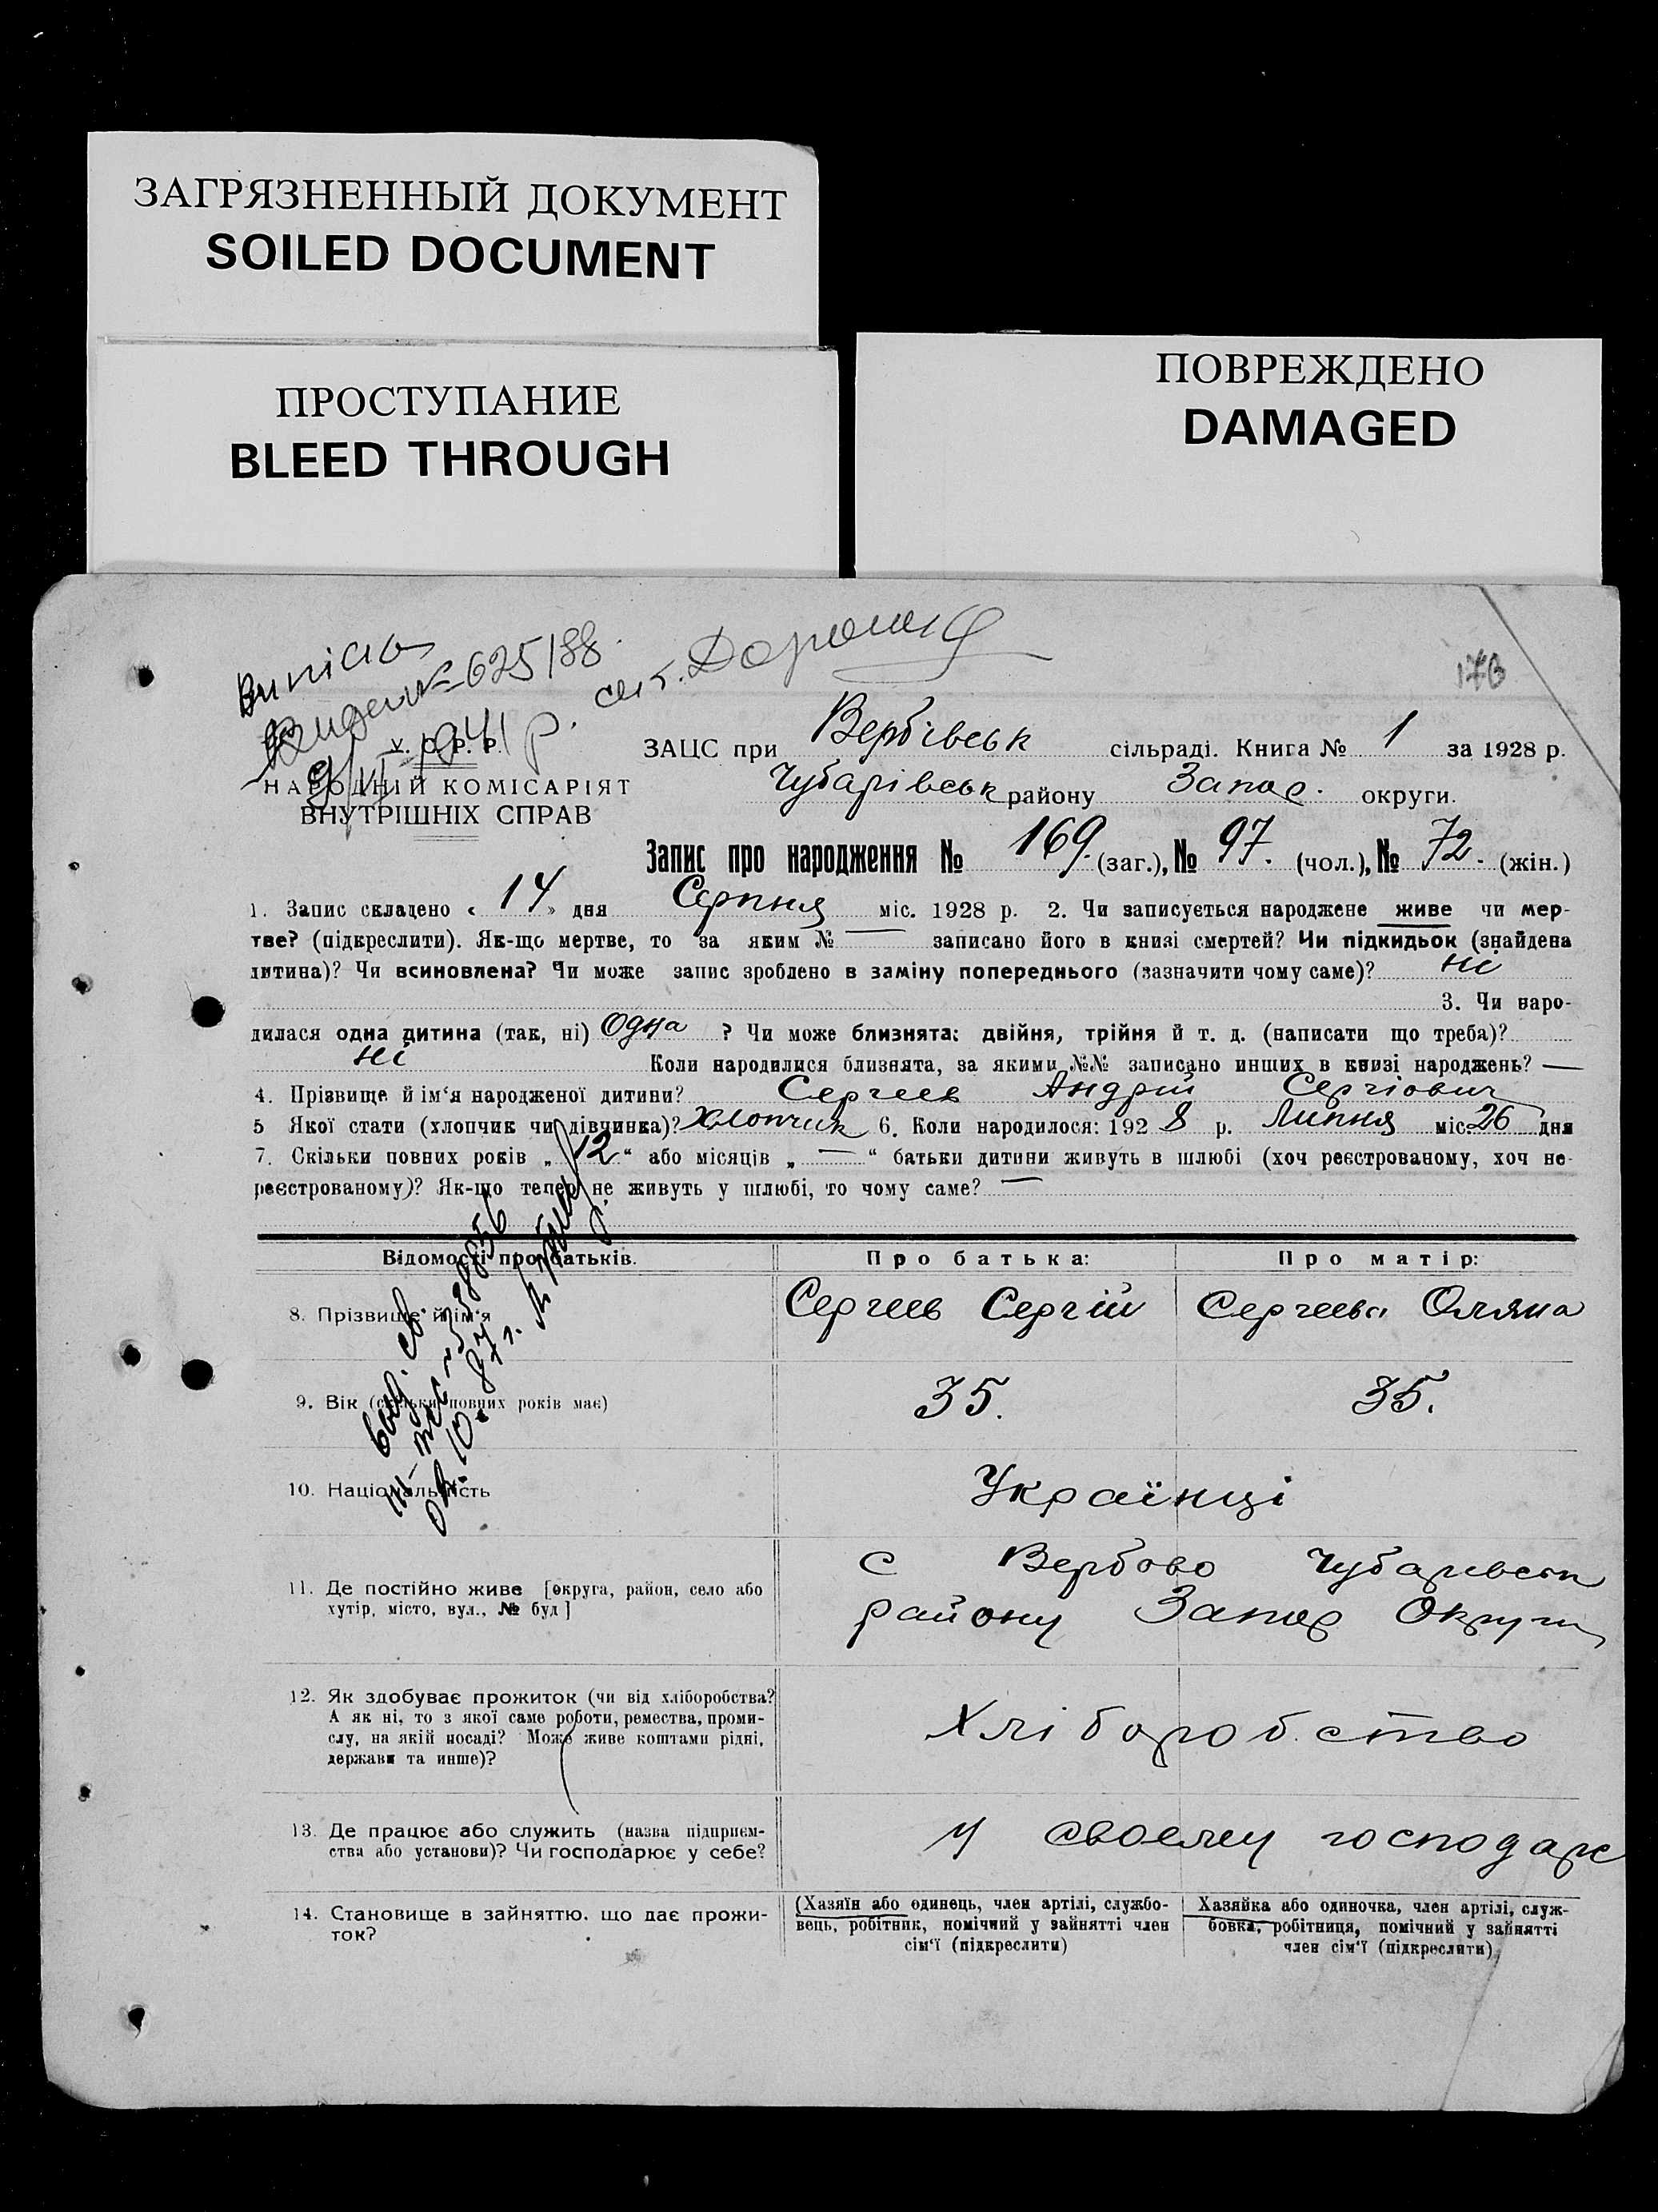 ЗАГРЯЗНЕННЫЙ ДОКУМЕНТ
SOILED DOCUMENT
ПРОСТУПАНИЕ
BLEED THROUGH
ПОВРЕЖДЕНО
DAMAGED
№ 625/88.
1941 р.
У. С. Р. Р.
НАРОДНІЙ КОМІСАРІЯТ
ВНУТРІШНІХ СПРАВ
ЗАЦС при Вербівськ сільраді. Книга № 1 за 1928 р.
Чубарівськ району Запор. округи.
Запис про народження № 169. (заг.), № 97. (чол.), № 72. (жін.)
1. Запис складено « 14 » дня Серпня міс. 1928 р. 2. Чи записується народжене живе чи мер-
тве? (підкреслити). Як-що мертве, то за яким № — записано його в книзі смертей? Чи підкидьок (знайдена
дитина)? Чи всиновлена? Чи може запис зроблено в заміну попереднього (зазначити чому саме)? ні
3. Чи наро-
дилася одна дитина (так, ні) Одна ? Чи може близнята: двійня, трійня й т. д. (написати що треба)?
ні Коли народилися близнята, за якими №№ записано инших в книзі народжень? —
4. Прізвище й ім‘я народженої дитини? Сергеев Андрій Сергіович
5 Якої стати (хлопчик чи дівчинка)? Хлопчик 6. Коли народилося: 1928 р. Липня міс. 26 дня
7. Скільки повних років „ 12 “ або місяців „ — “ батьки дитини живуть в шлюбі (хоч реєстрованому, хоч не-
реєстрованому)? Як-що тепер не живуть у шлюбі, то чому саме? —
Відомості про батьків. Про батька: Про матір:
8. Прізвище й ім‘я Сергеев Сергій Сергеева Оляна
9. Вік (скільки повних років має) 35. 35.
10. Національність Українці
11. Де постійно живе [округа, район, село або
хутір, місто, вул., № буд]
с Вербово Чубаривськ
району Запор Округи
12. Як здобуває прожиток (чи від хліборобства?
А як ні, то з якої саме роботи, ремества, проми-
слу, на якій посаді? Може живе коштами рідні,
держави та инше)?
Хліборобство
13. Де працює або служить (назва підприєм-
ства або установи)? Чи господарює у себе?
У своему господарс
14. Становище в зайняттю, що дає прожи-
ток?
(Хазяїн або одинець, член артілі, службо-
вець, робітник, помічний у зайнятті член
сім‘ї (підкреслити)
Хазяйка або одиночка, член артілі, служ-
бовка, робітниця, помічний у зайнятті
член сім‘ї (підкреслити)